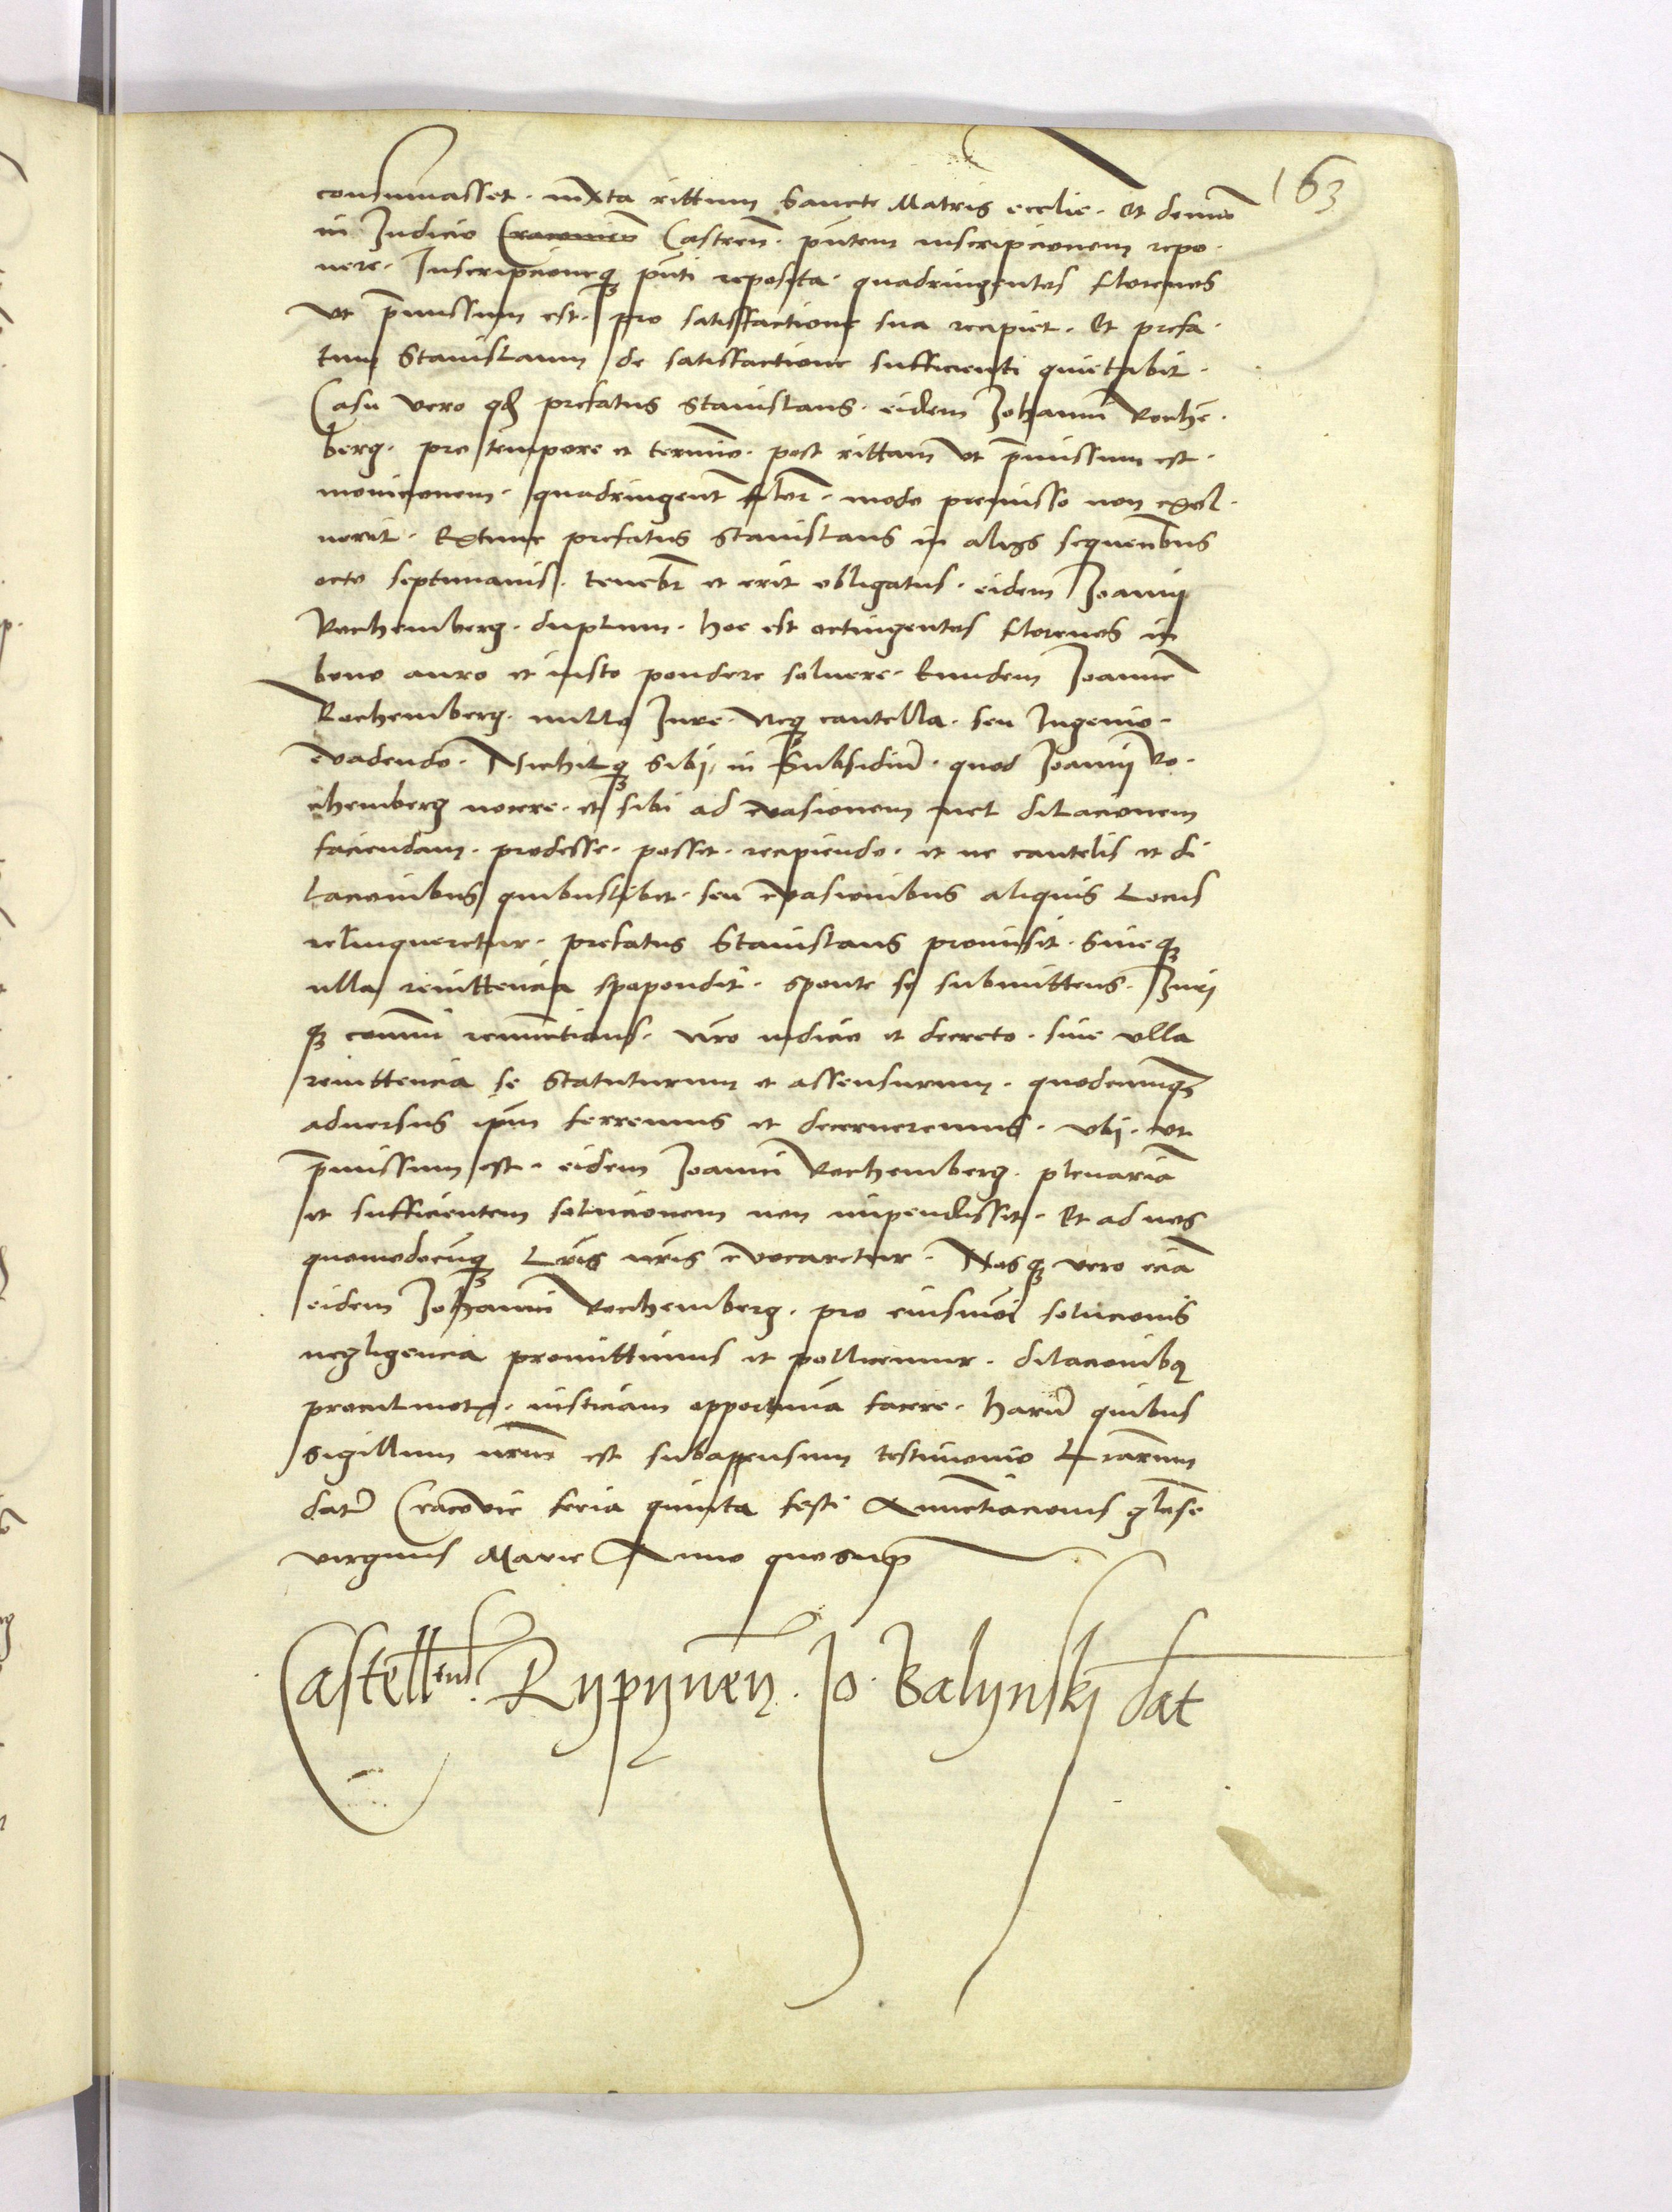 163
consumasset · iuxta rittum Sancte Matris ecclie · Et demū
in Iudicio Cracovien̄ Castren̄ · pn̄tem inscripcionem repo·
nere · Inscripcioneqꝫ pn̄ti reposita · quadringentos florenos
vt p̄missum est · pro satisfactione sua recipiet · Et prefa·
tum Stanislaum de satisfactione sufficienti quietabit ·
Casu vero qd̄ prefatus Stanislaus · eidem Johanni Rochē·
berg · pro tempore et termīo · post rittam vt p̄missum est ·
monicionem · quadringent̄ flor̄ · modo premisso non exol·
uerit · Extunc prefatus Stanislaus in alijs sequentibus
octo septimanis · tenebr̄ et erit obligatus · eidem Joanni
Rochemberg · duplum · hoc est octingentos florenos in
bono auro et iusto pondere soluere · Eundem Joannē
Rochemberg · nullo Iure · neqꝫ cautella · seu Ingenio ·
evadendo · Nichilqꝫ sibi, in Subsidiū · quod Joanni Ro·
chemberg nocere · et sibi ad evasionem uel dilacionem
faciendam · prodesse · posset · recipiendo · et ne cautelis et di
lacionibus quibuslibet · seu evasionibus aliquis Locus
relinqueretur · prefatus Stanislaus promisit · Sineqꝫ
ulla remittencia spopondit · sponte se submittens · Iuri
qꝫ com̄ni renunctians · nr̄o iudicio et decreto · sine ulla
remittencia se Statuturum et assensurum · quodcumqꝫ
adversus ip̄m ferremus et decerneremus · ubi · ut
p̄missum est · eidem Joanni Rochemberg · plenariā
et sufficientem solucionem non impendisset · Et ad nos
quomodocūqꝫ Lr̄is nr̄is evocaretur · Nosqꝫ vero eciā
eidem Johanni Rochemberg · pro eiusmōi solucionis
negligencia promittimus et pollicemur · dilacionibꝫ
procul motis · iusticiam opportunā facere · harū quibus
Sigillum nr̄um est subappensum testimonio Lr̄arum
datū Cracovie feria quinta festi Annuncciacionis gl̄ose
virginis Marie Anno quo sup̄
Castellan̄ Rypynen̄ · Jo · Balynski dat